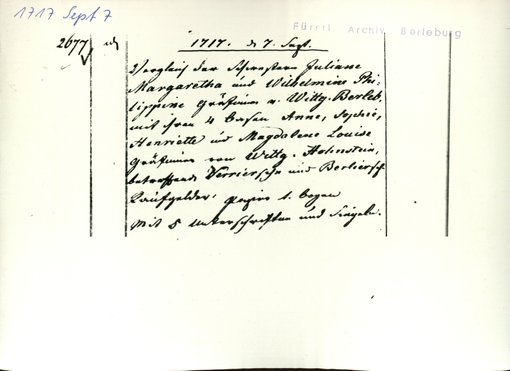 1717 Sept 7
Fürstl. Archiv Berleburg
2677 
1717. d 7. Sept.
Vergleich der Schwestern Juliane
Margaretha und Wilhelmine Phi-
lippine Gräfinnen v. Wittg. Berleb.
mit ihren 4 basen Anne, Sophie,
Henriette und Magdalene Louise
Gräfinnen von Wittg. Hohnstein,
betreffend Verriersche und Berliersch
Kaufgelder, papier 1. bogen
Mit 5 Unterschriften und Siegeln.